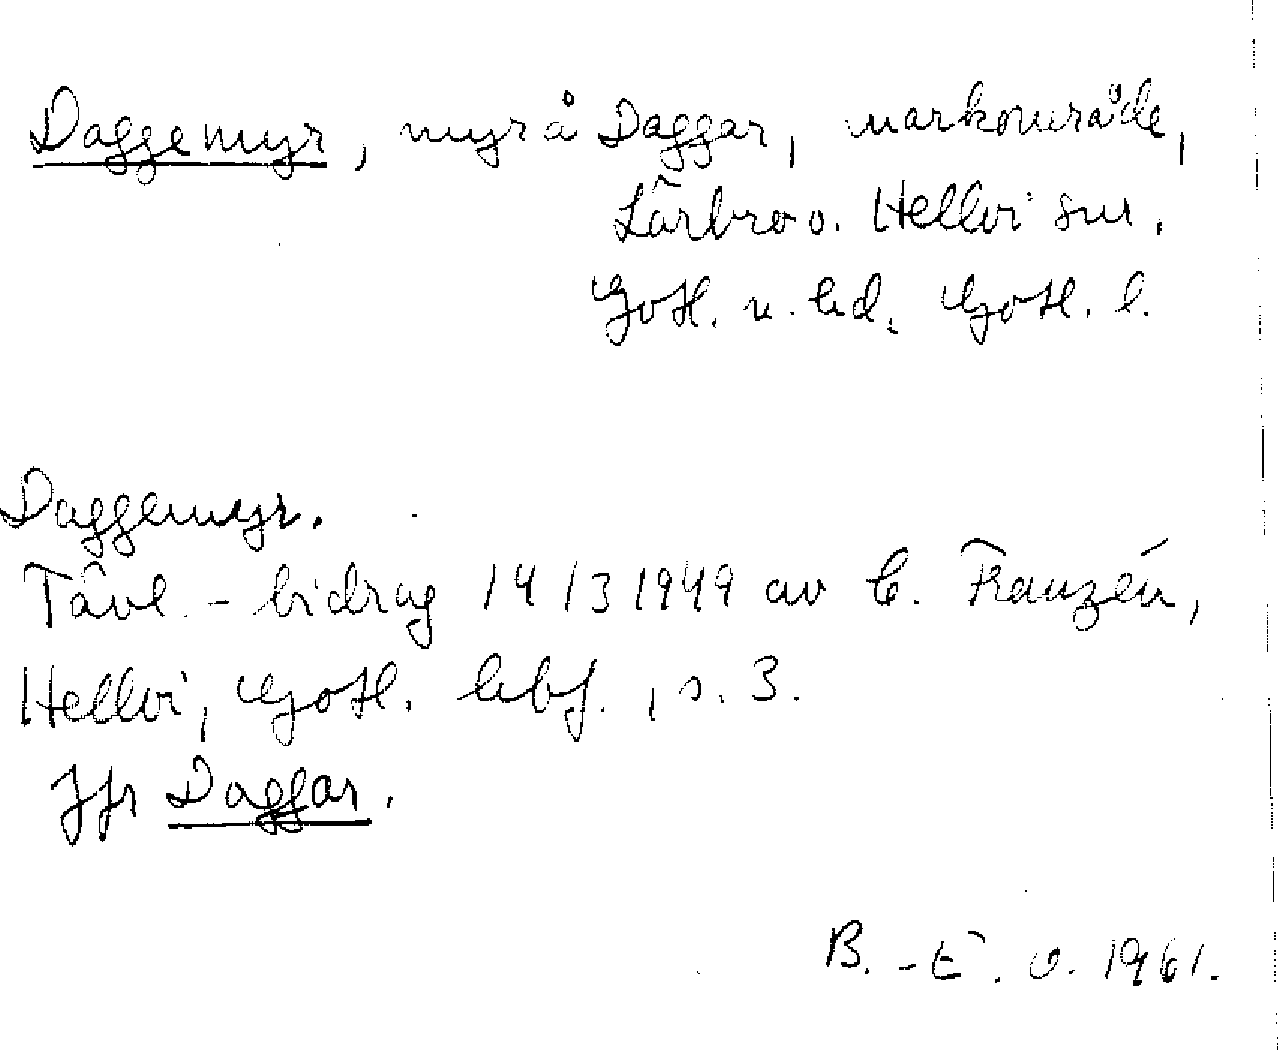 Daggemyr, myr å Daggar, markområde,
Lärbro o. Hellvi snr.
Gotl. n. hd. Gotl. l.
Daggemyr.
Tävl. - bidrag 14/3 1949 av C. Franzén,
Hellvi, Gotl. , s. 3.
Jfr Daggar.
B. - E. O. 1961.